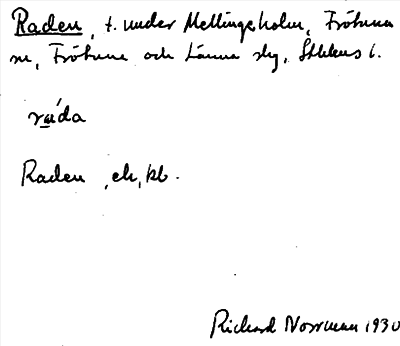 Raden, t. under Mellingeholm, Frötuna
sn, Frötuna och Länna slg, Sthlms l.
rɯ́da
Raden, ek, kb.
Richard Norrman 1930